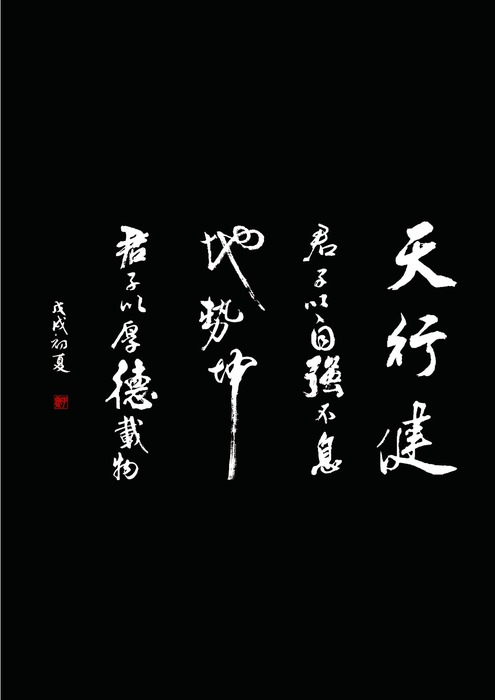 天行健
君子以自强不息
地势坤
君子以厚德载物
戊戌初夏